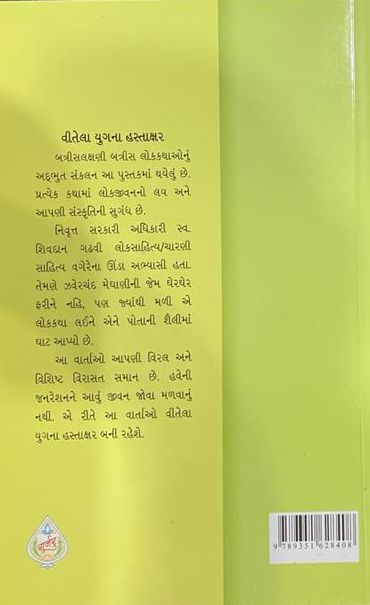 વીતેલા યુગના હસ્તાક્ષર
બત્રીસલક્ષણી બત્રીસ લોકકથાઓનું
અદ્ભુત સંકલન આ પુસ્તકમાં થયેલું છે.
પ્રત્યેક કથામાં લોકજીવનનો લય અને
આપણી સંસ્કૃતિની સુગંધ છે.
નિવૃત્ત સરકારી અધિકારી સ્વ.
શિવદાન ગઢવી લોકસાહિત્ય/ચારણી
સાહિત્ય વગેરેના ઊંડા અભ્યાસી હતા.
તેમણે ઝવેરચંદ મેઘાણીની જેમ ઘેરઘેર
ફરીને નહિ, પણ જ્યાંથી મળી એ
લોકકથા લઈને એને પોતાની શૈલીમાં
ઘાટ આપ્યો છે.
આ વાર્તાઓ આપણી વિરલ અને
વિશિષ્ટ વિરાસત સમાન છે. હવેની
જનરેશનને આવું જીવન જોવા મળવાનું
નથી. એ રીતે આ વાર્તાઓ વીતેલા
યુગના હસ્તાક્ષર બની રહેશે.
ગૂર્જર
9 789351 628408